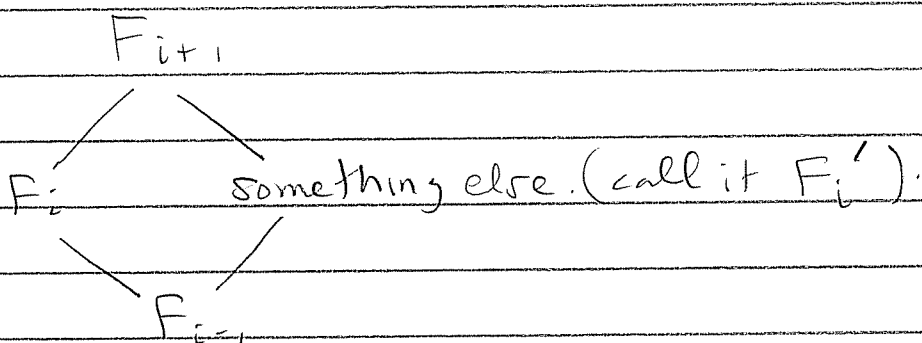 F_{i+1}
F_i something else. (call it F_i').
F_{i-1}